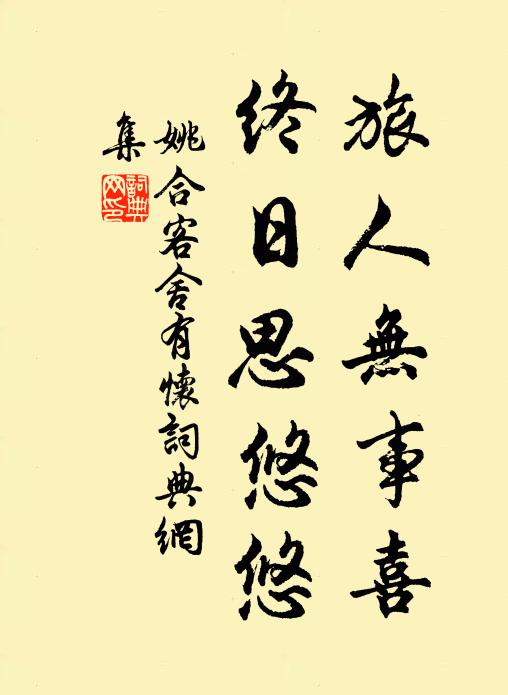 旅人無事喜
終日思悠悠
姚合客舍有懷詞典網
集
詞典
网印